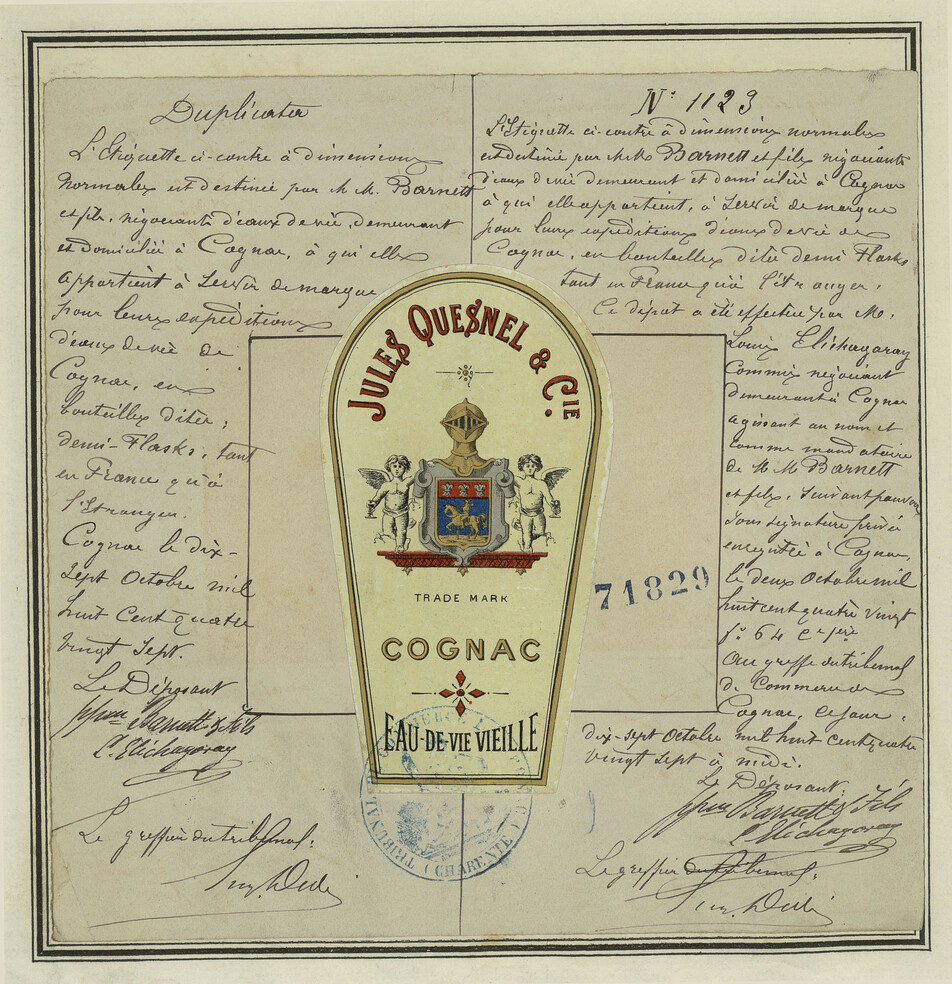 Duplicata
L'Etiquette ci-contre à dimensions
normales est destinée par M.M. Barnett
et fils, négociants d'eaux de vie, demeurant
et domiciliés à Cognac, à qui elle
appartient à servir de marque
pour leurs expéditions
d'eaux de vie de
Cognac, en
bouteilles dites;
demi-Flasks, tant
en France qu'à
l'Etranger.
Cognac le dix-
sept Octobre mil
huit Cent quatre
vingt sept.
Le Déposant
ppon Barnett & Fils
L. Elichagaray
Le greffier du tribunal:
N° 1123
L'Etiquette ci-contre à dimensions normales
est destinée par M.M. Barnett et fils négociants
d'eaux de vie demeurant et domiciliés à Cognac
à qui elle appartient, à servir de marque
pour leurs expéditions d'eaux de vie de
Cognac, en bouteilles dites demi Flasks
tant en France qu'à l'étranger.
Ce dépôt a été effectué par M.
Louis Elichagaray
Commis négociant
demeurant à Cognac
agissant au nom et
comme mandataire
de M.M. Barnett
et fils, suivant pouvoir
sous signature privée
enregistré à Cognac,
le deux Octobre mil
huit cent quatre vingt
f° 64 Ce
au greffe du tribunal
de Commerce de
Cognac, ce jour,
dix-sept Octobre mil huit Cent quatre
vingt sept à midi.
Le Déposant:
ppon Barnett & Fils
L. Elichagaray
Le greffier du tribunal:
JULES QUESNEL & CIE.
TRADE MARK
COGNAC
EAU-DE-VIE VIEILLE
71829
TRIBUNAL DE
(CHARENTE)